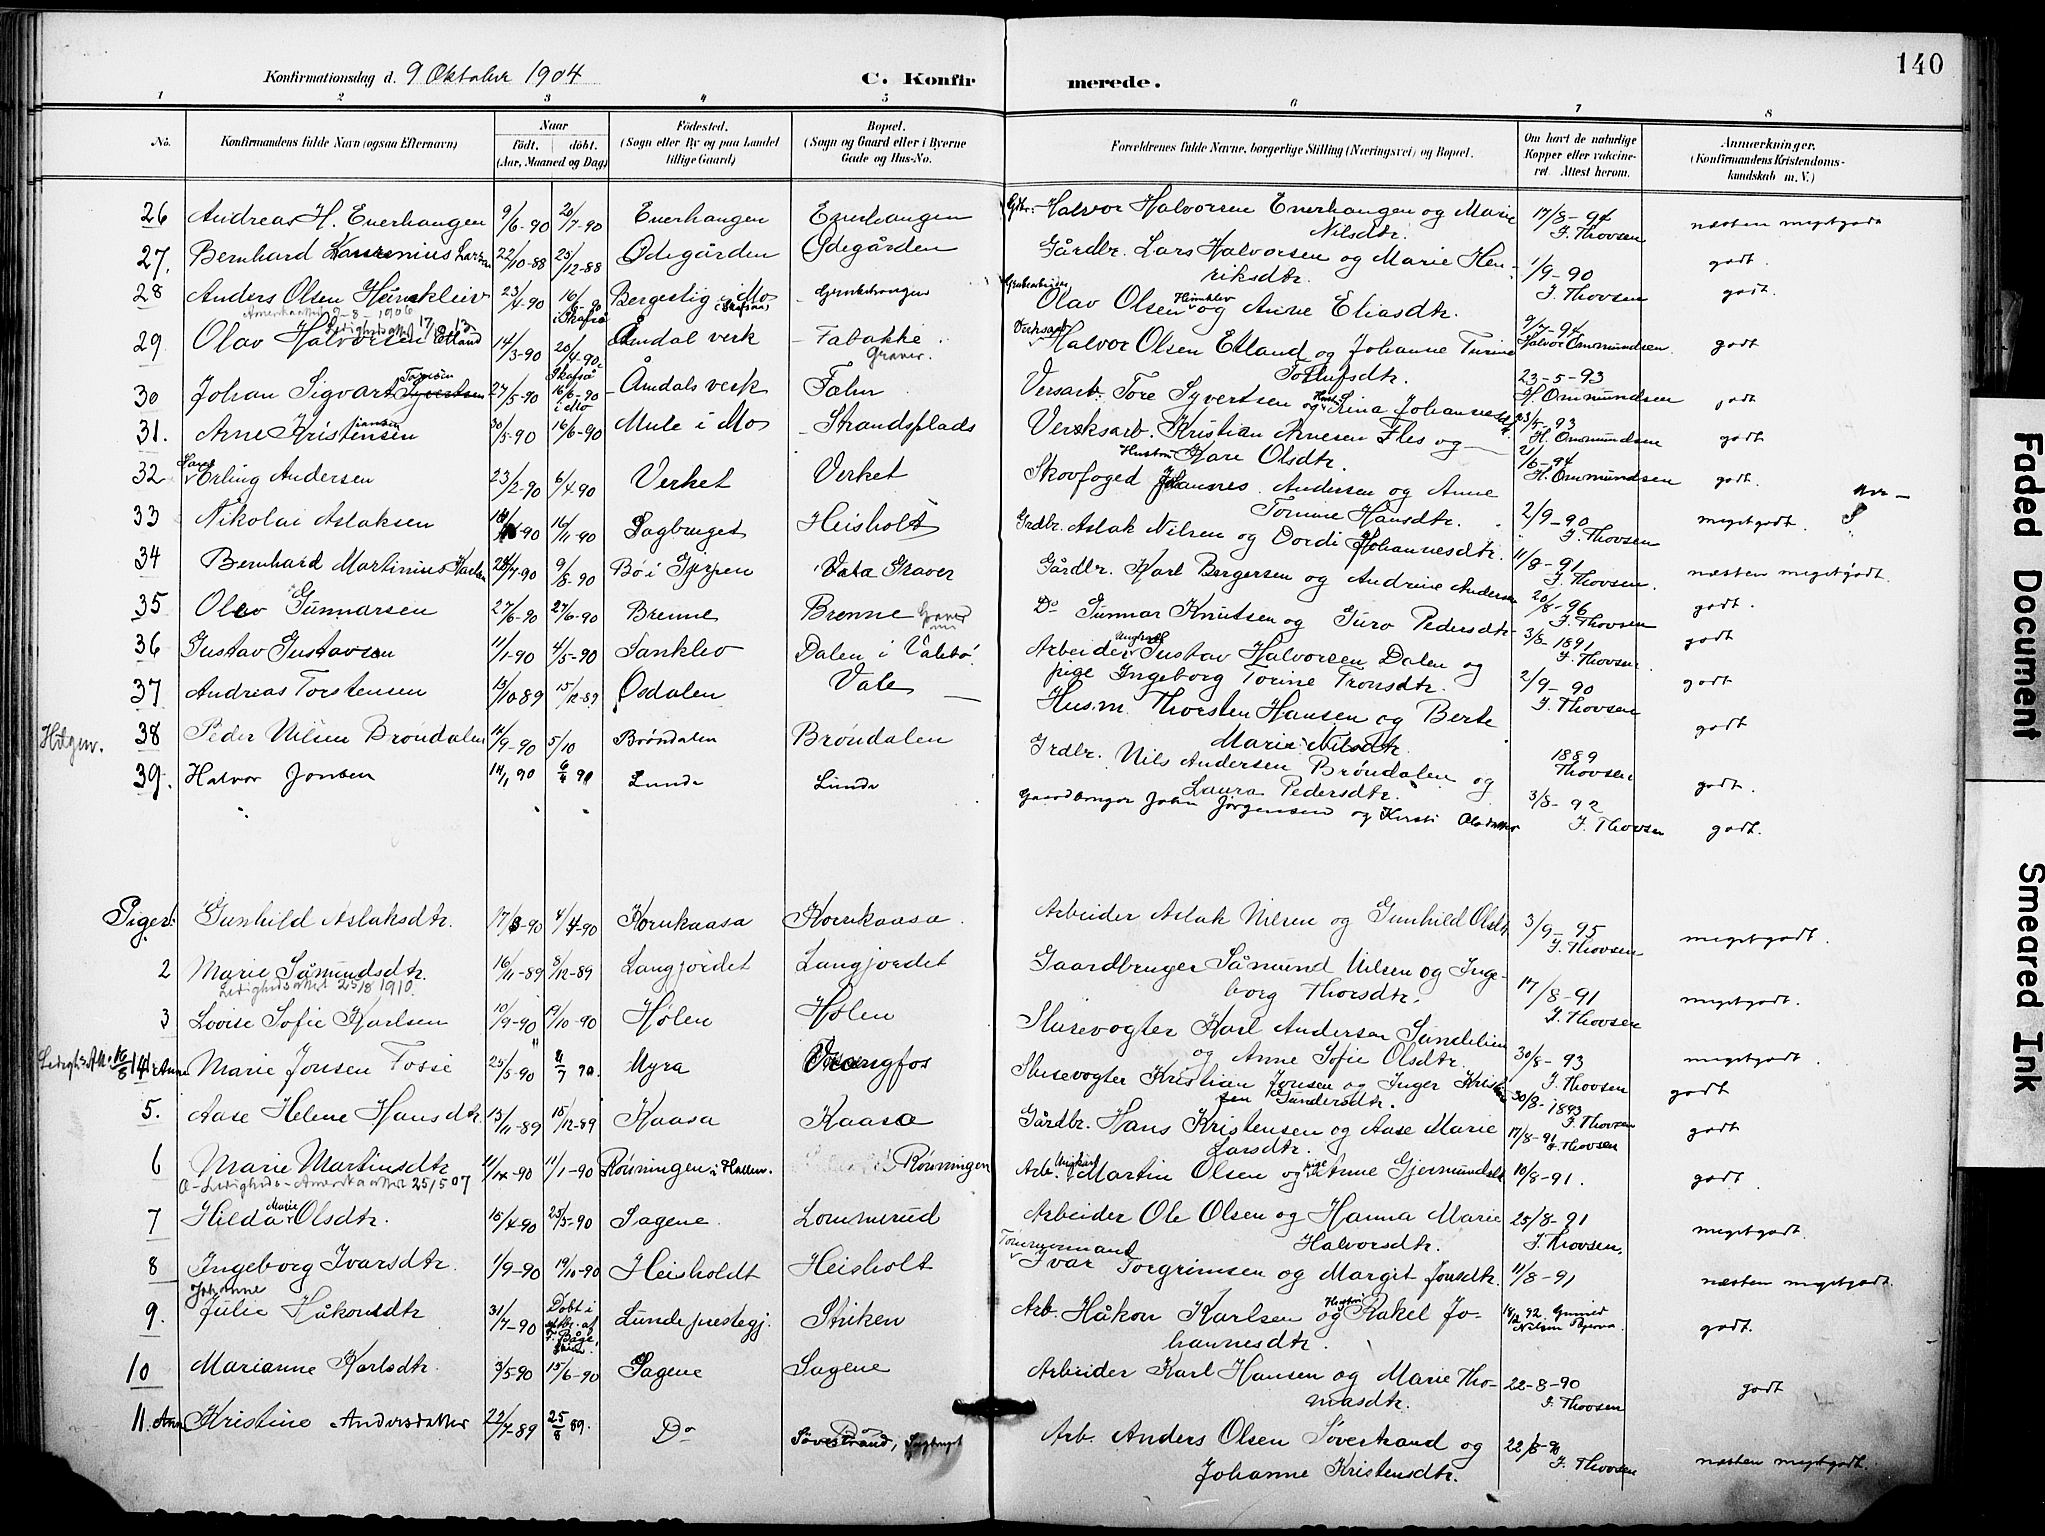 140
Konfirmationsdag d. 9 Oktober 1904
C. Konfir
merede.
1 2 3 4 5 6 7 8
No. Konfirmandens fulde Navn (ogsaa Efternavn)
Naar
födt. döbt.
(Aar, Maaned og Dag)
Födested.
(Sogn eller By og paa Landet
tillige Gaard)
Bopæl.
(Sogn og Gaard eller i Byerne
Gade og Hus-No.
Forældrenes fulde Navne, borgerlige Stilling (Næringsvei) og Bopæl.
Om havt de naturlige
Kopper eller vakcine-
ret. Attest herom.
Anmærkninger.
(Konfirmandens Kristendoms-
kundskab m. V.)
26 Andreas H. Enerhaugen 9/6-90 20/7-90 Enerhaugen Enerhaugen Halvor Halvorsen Enerhaugen og Marie 17/8-94 næsten megetgodt
Nilsdtr. J. Thovsen
27. Bernhard Laurenius Larsen 22/10-88 25/12-88 Ødegården Ødegården Gårdbr. Lars Halvorsen og Marie Hen- 1/9-90 godt.
riksdtr. J. Thovsen
28 Anders Olsen 23/4-90 Bergestig i Mo Olav Olsen og Anne Eliasdtr. godt.
9-8-1906
29 Olav Halvorsen Etland 14/3-90 20/4-90 Åmdal verk Fabakke Halvor Olsen Etland og Johanne Turine Halvor Ommundsen godt
Graver. Tollufsdtr.
30 Johan Sigvart 27/5-90 16/6-90 Åmdals verk Faln Tore Syvertsen og Stina 23-5-93 godt
i Mo H. Ommundsen
31. Arne Kristensen 30/5-90 16/6-90 Mule i Mo Strandsplads Verksarb. Kristian Arnesen Fles og 23/5-93 godt
Hustru Kare Olsdtr. H. Ommundsen
32 Erling Andersen 23/2-90 6/4-90 Verket Verket Skovfoged Johannes Andersen og Anne godt.
Tomine Hansdtr. H. Ommundsen
33 Nikolai Aslaksen 16/11-90 Sagbruget Heisholt Grdbr. Aslak Nilsen og Dordi Johannesdtr. 2/9-90 megetgodt.
J. Thovsen
34 Bernhard Martinius Karlsen 9/8-90 Bø i Gjerpen Vala Graver Gårdbr. Karl Bergersen og Andrine Andersen 11/8-91 næsten megetgodt.
J. Thovsen.
35 Olav Gunnarsen 27/6-90 27/6-90 Brenne Brenne Do Gunnar Knutsen og Guro Pedersdtr. 20/8-96 godt.
J. Thovsen
36 Gustav Gustavsen 11/1-90 4/5-90 Sanklev Dalen i Valebø Arbeider Gustav Halvorsen Dalen og 3/8-1891 godt
pige Ingeborg Torine Tronsdtr. J. Thovsen.
37 Andreas Torstensen 13/10 89 15/12-89 Osdalen Vale Husm. Thorsten Hansen og Berte 2/9-90 godt
Marie Nilsdtr. J. Thovsen
38 Peder Nilsen Brøndalen 11/9-90 5/10 Brøndalen Brøndalen Grdbr. Nils Andersen Brøndalen og 1889 godt
Laura Pedersdtr. Thovsen
39. Halvor Jonsen 14/1 90 6/4 90 Lunde Lunde Gaardbruger John Jørgensen og Kirsti Olsdatter 3/8-92 godt.
J. Thovsen godt.
Piger: Gunhild Aslaksdtr. 4/4-90 Kornkaasa Kornkaasa. Arbeider Aslak Nilsen og Gunhild Olsdtr. 3/9-95 megetgodt.
J. Thovsen
2 Marie Såmundsdtr. 16/11-89 8/12-89 Langjordet Langjordet Gaardbruger Såmund Nilsen og Inge- 17/8-91 megetgodt.
Ledighedsattest 25/8 1910. borg Thorsdtr. J. Thovsen
3 Lovise Sofie Karlsen 10/9-90 19/10-90 Hølen Hølen Slusevogter Karl Andersen Sundelien 30/8-93 megetgodt.
og Anne Sofie Olsdtr. J. Thovsen
4 Anne Marie Jonsen Fosse 25/5-90 Myra Vrangfos Slusevogter Kristian Jonsen og Inger 30/8-1893 godt
Gundersdtr. J. Thovsen
5. Aase Helene Hansdtr. 13/11-89 15/12-89 Kaasa Kaasa Gårdbr. Hans Kristensen og Aase Marie 17/8-91 godt
Larsdtr. J. Thovsen
6 Marie Martinsdtr. 11/1-90 Røiningen Røiningen Arb. Ungkarl Martin Olsen og pige Anne Gjermundsdtr. 10/8-91. godt.
Ledigheds-Amerikaattest 25/5 07
7 Hilda Marie Olsdtr. 15/4-90 25/5-90 Sagene. Lommerud Arbeider Ole Olsen og Hanna Marie 25/8-91 megetgodt.
Halvorsdtr. J. Thovsen.
8 Ingeborg Ivarsdtr. 1/9-90 19/10-90 Heisholdt Heisholt Tømmermand Ivar Torgrimsen og Margit Jonsdtr. 11/8-91 næsten megetgodt.
9. Julie Johanne Håkonsdtr. 31/7-90 Døbt i Lunde prestegj. Striken Arb. Håkon Karlsen og Hustru Rakel Jo- godt.
hannesdtr.
10 Marianne Karlsdtr. 3/5-90 15/6-90 Sagene Sagene Arbeider Karl Hansen og Marie Tho- 22-8-90 godt
masdtr. J. Thovsen
11. Anne Kristine Andersdatter 22/7-89 25/8 89. Do Søvestrand, Sagbruget Arb. Anders Olsen Søvestrand og 22/8-90 næsten megetgodt.
Johanne Kristensdtr. J. Thovsen
Faded Document
Smeared Ink